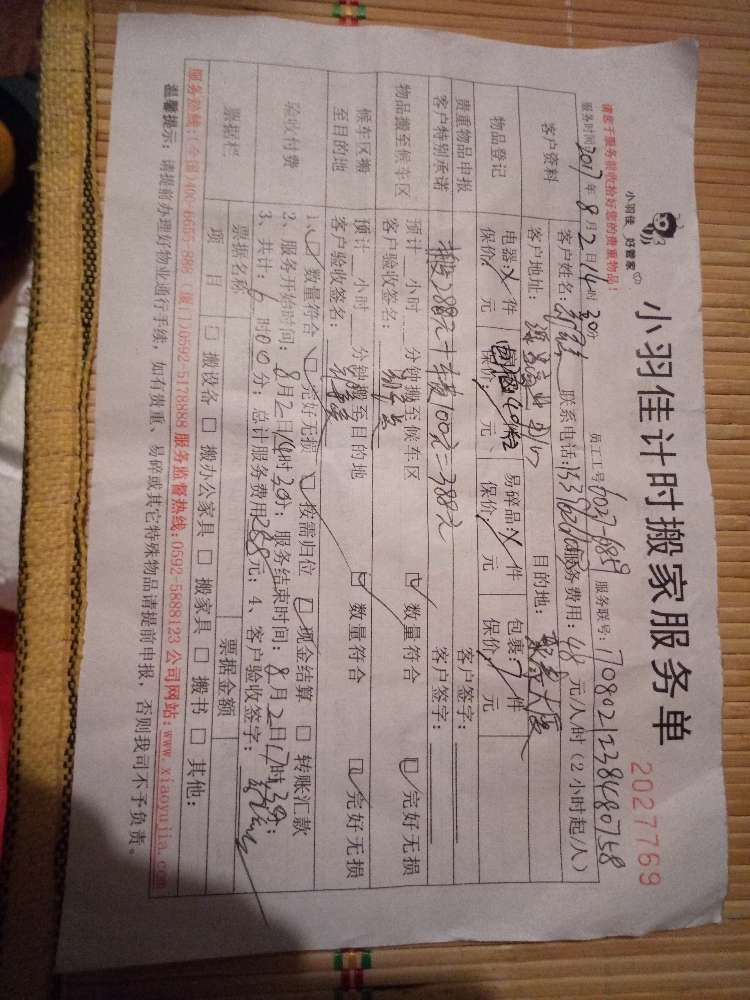 小羽佳 好管家
小羽佳计时搬家服务单
2027769
请您于服务前收拾好您的贵重物品!
员工工号: 服务联号: 
服务时间:2017年8月2日14时30分
客户资料
客户姓名: 联系电话: 服务费用:48元/人/时(2小时起/人)
客户地址: 目的地:
物品登记
电器: 件 易碎品: 件 包裹: 件
保价: 元 保价: 元、 保价: 元 保价: 元
贵重物品申报 客户签字:
客户特别承诺 搬288元+车费100元=388元 客户签字:
物品搬至候车区 预计 小时 分钟搬至候车区 数量符合 完好无损
客户验收签名:
候车区搬至目的地 预计 小时 分钟搬至目的地 数量符合 完好无损
客户验收签名:
验收付费
1、数量符合 完好无损 按需归位 现金结算 转账汇款
2、服务开始时间:8月2日14时30分;服务结束时间:8月2日17时30分;
3、共计: 时00分;总计服务费用288元;4、客户验收签字:
票据栏 票据名称 票据金额
项目 搬设备 搬办公家具 搬家具 搬书 其他:
服务热线:(全国)400-6655-888 (厦门)0592-5178888 服务监督热线:0592-5888123 公司网站:www.xiaoyujia.com
温馨提示:请提前办理好物业通行手续,如有贵重、易碎或其它特殊物品请提前申报,否则我司不予负责。